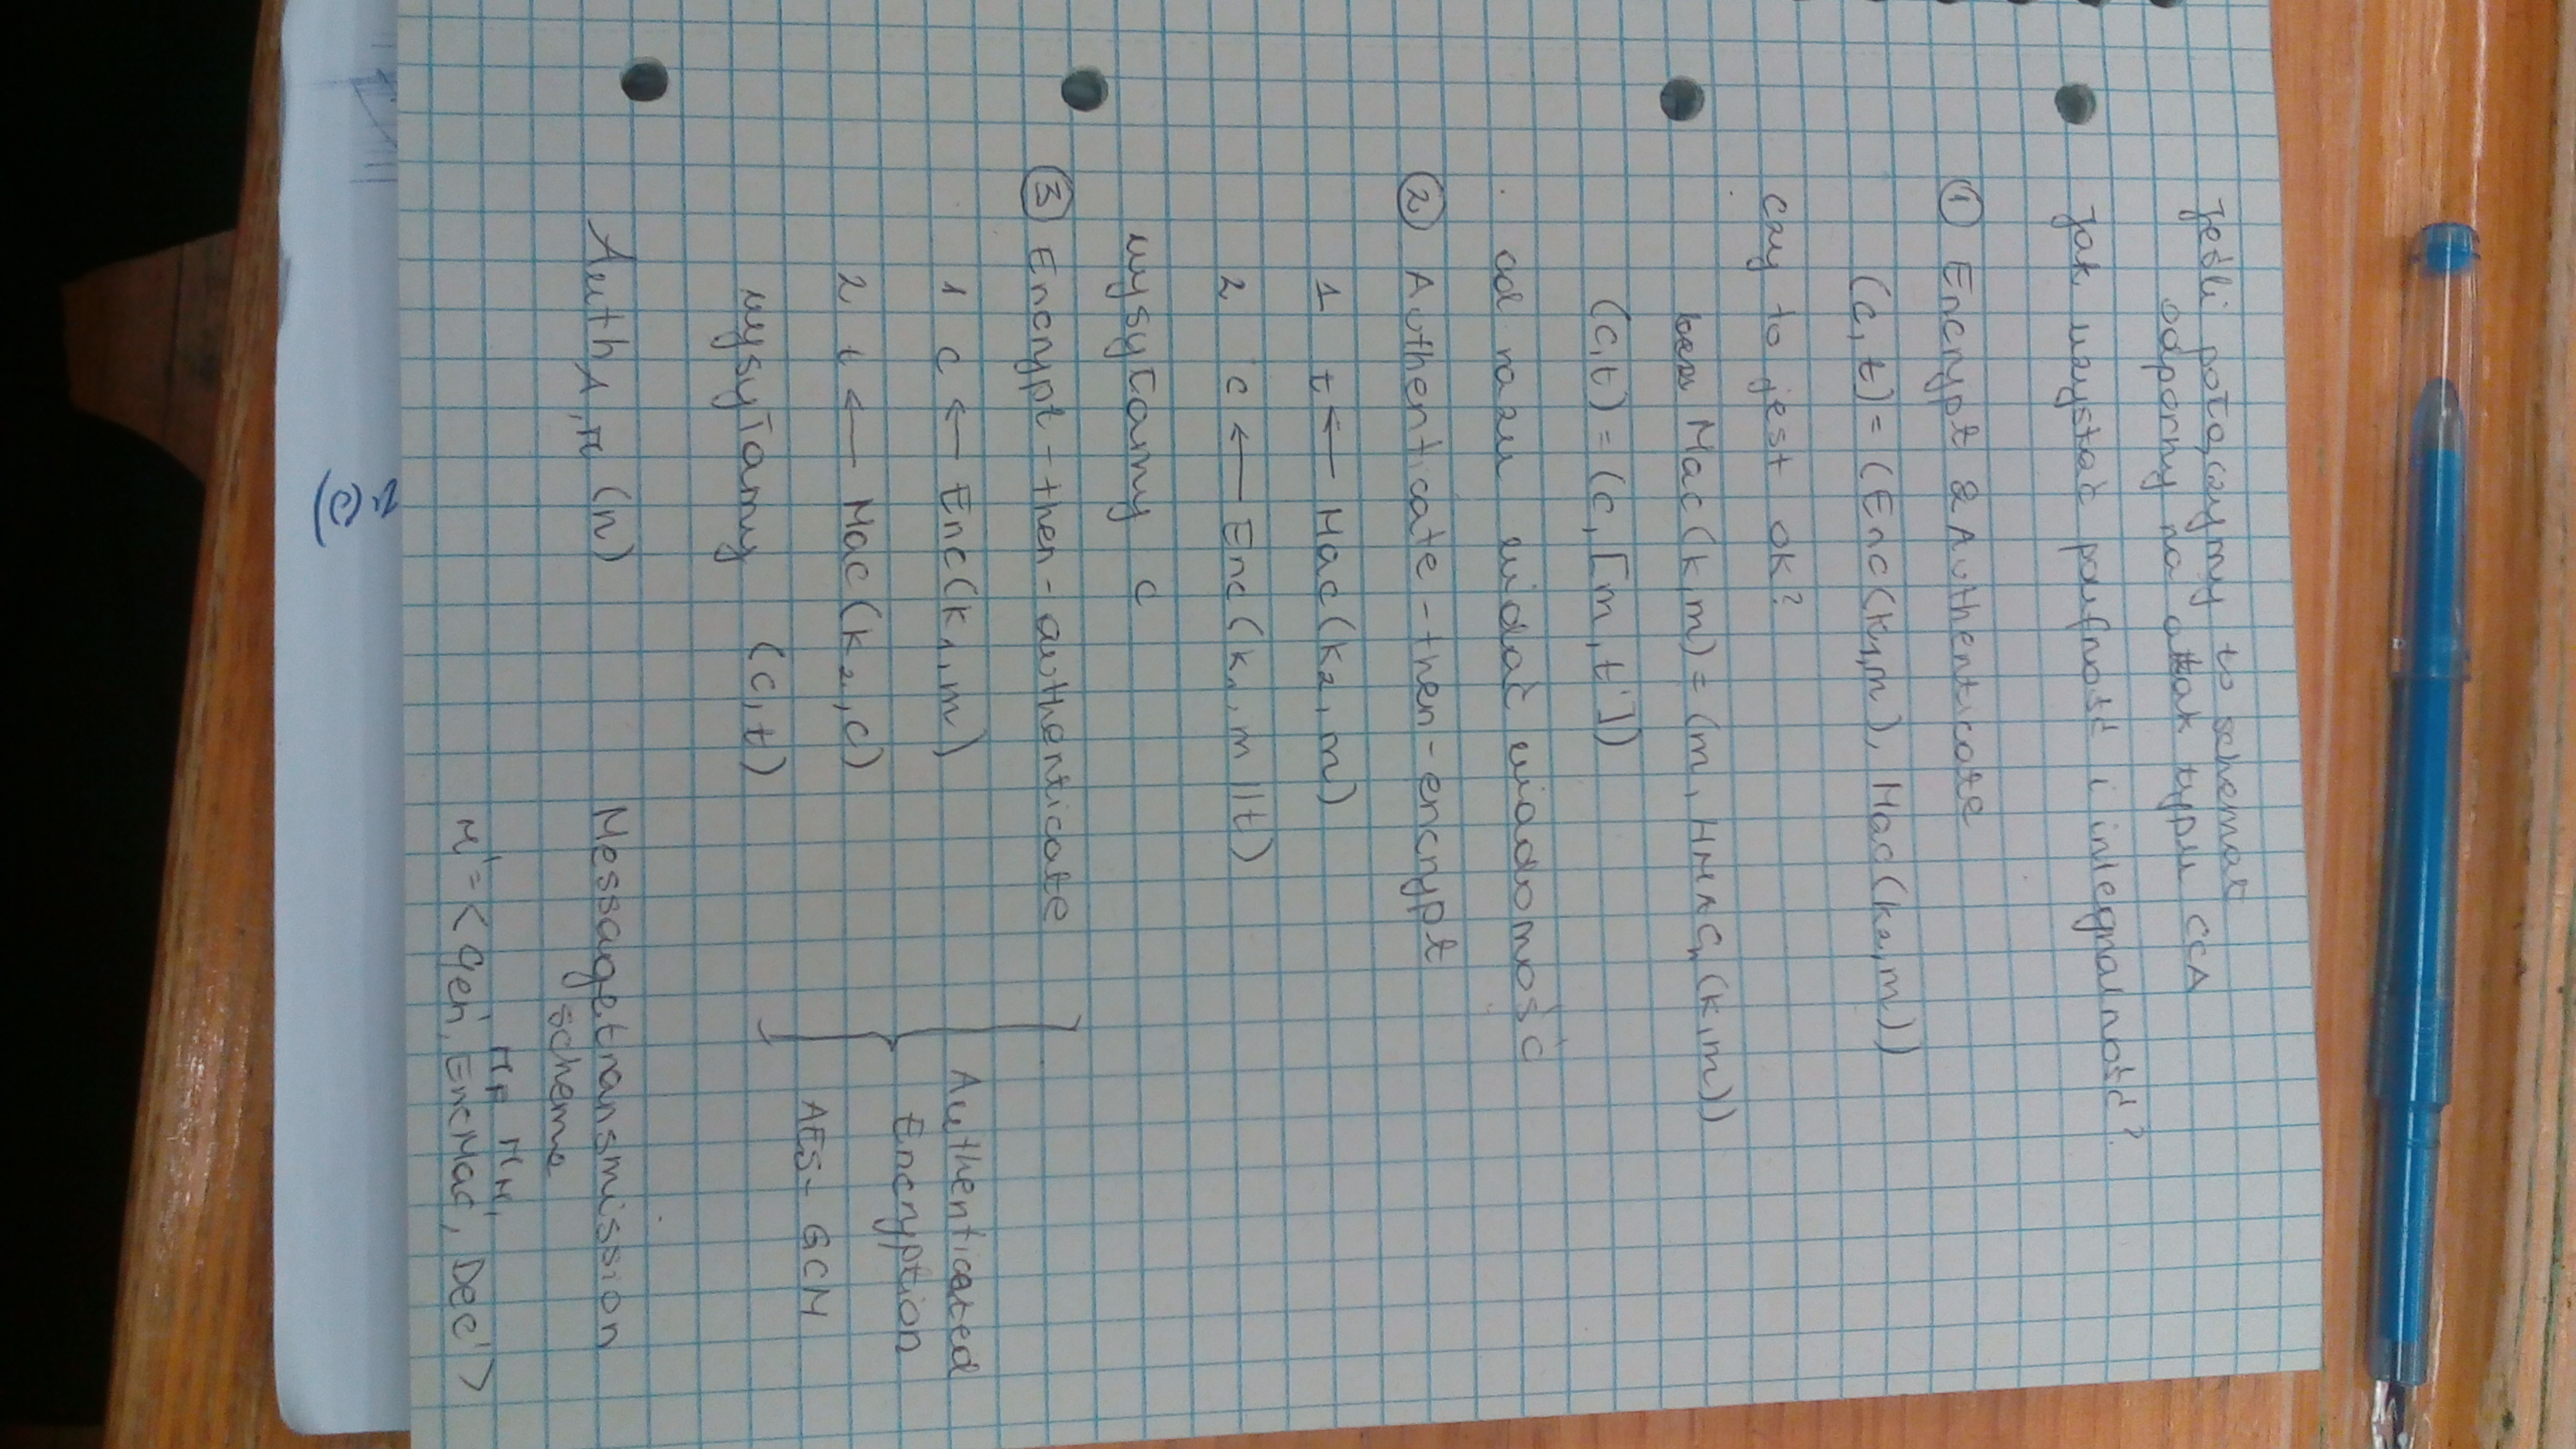 Jeśli połączymy to schemat
odporny na atak typu CCA
Jak uzyskać poufność i integralność?
① Encrypt & Authenticate
(c, t) = (Enc(k₁, m), Mac(k₂, m))
czy to jest ok?
Mac(k, m) = (m, HMAC(k, m))
(c, t) = (c, [m, t'])
od razu widać wiadomość
② Authenticate-then-encrypt
1 t ← Mac(k₂, m)
2 c ← Enc(k₁, m || t)
wysyłamy c
③ Encrypt-then-authenticate
1 c ← Enc(k₁, m)
2 t ← Mac(k₂, c)
wysyłamy (c, t)
Authenticated
Encryption
AES-GCM
Auth A,π (n)
Message transmission
scheme
= < Gen', EncMac', Dec' >